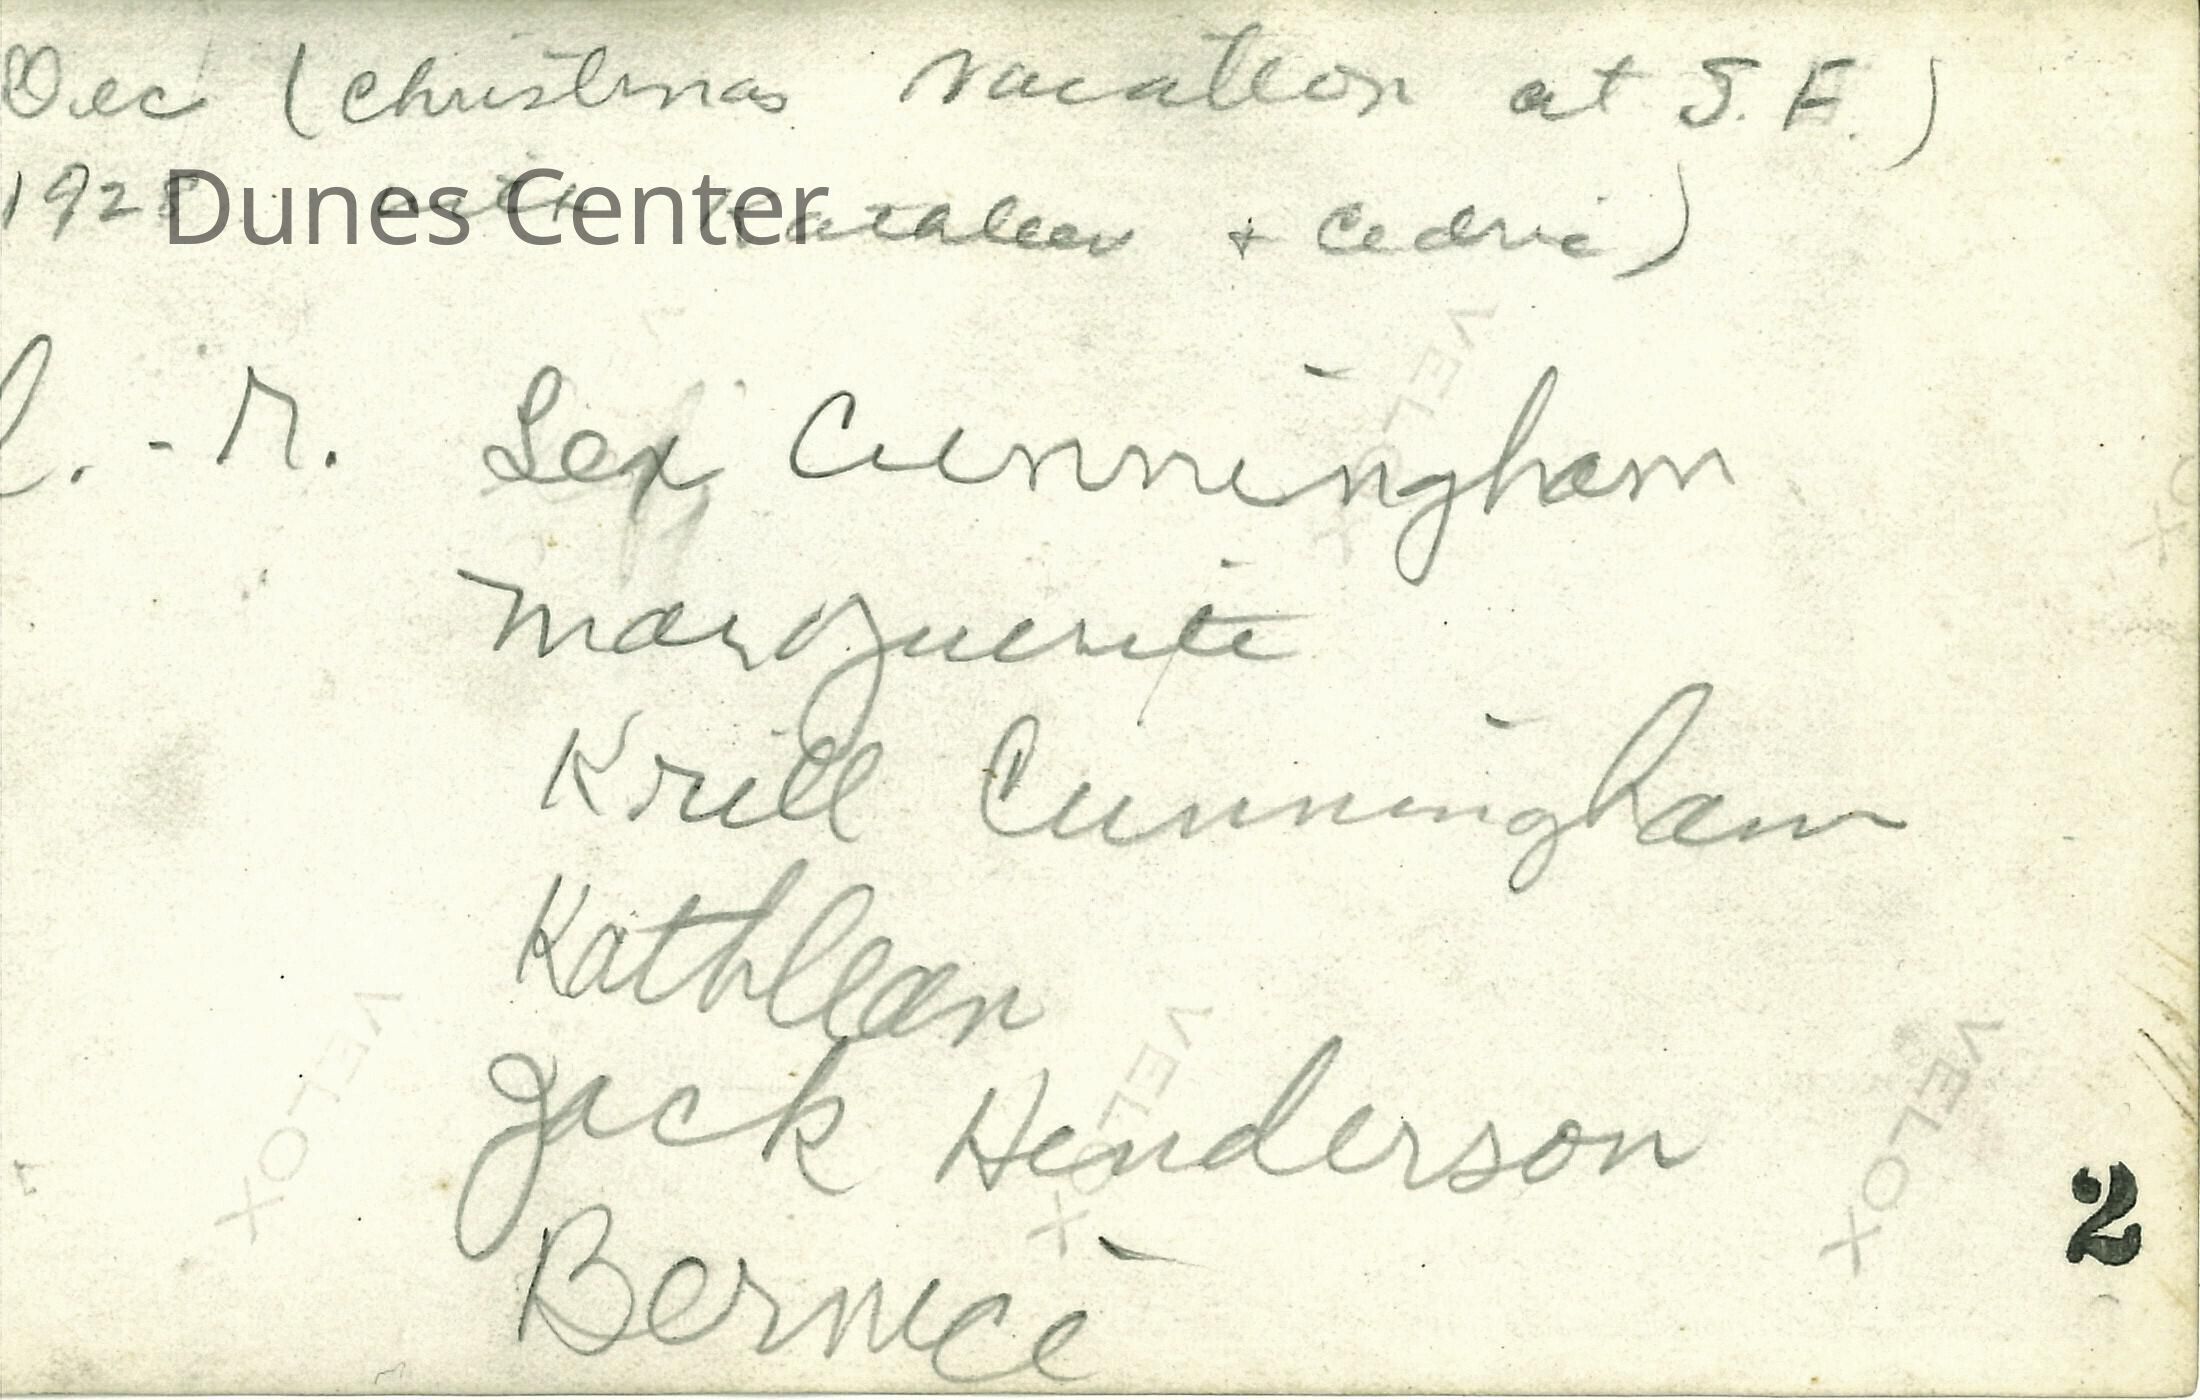 Dec (Christmas vacation at S.F.)
1928 with Kathleen + Cedric)
Dunes Center
l. - r. Lex Cunningham
Marguerite
Krill Cunningham
Kathleen
Jack Henderson
Bernice
2
VELOX
VELOX
VELOX
VELOX